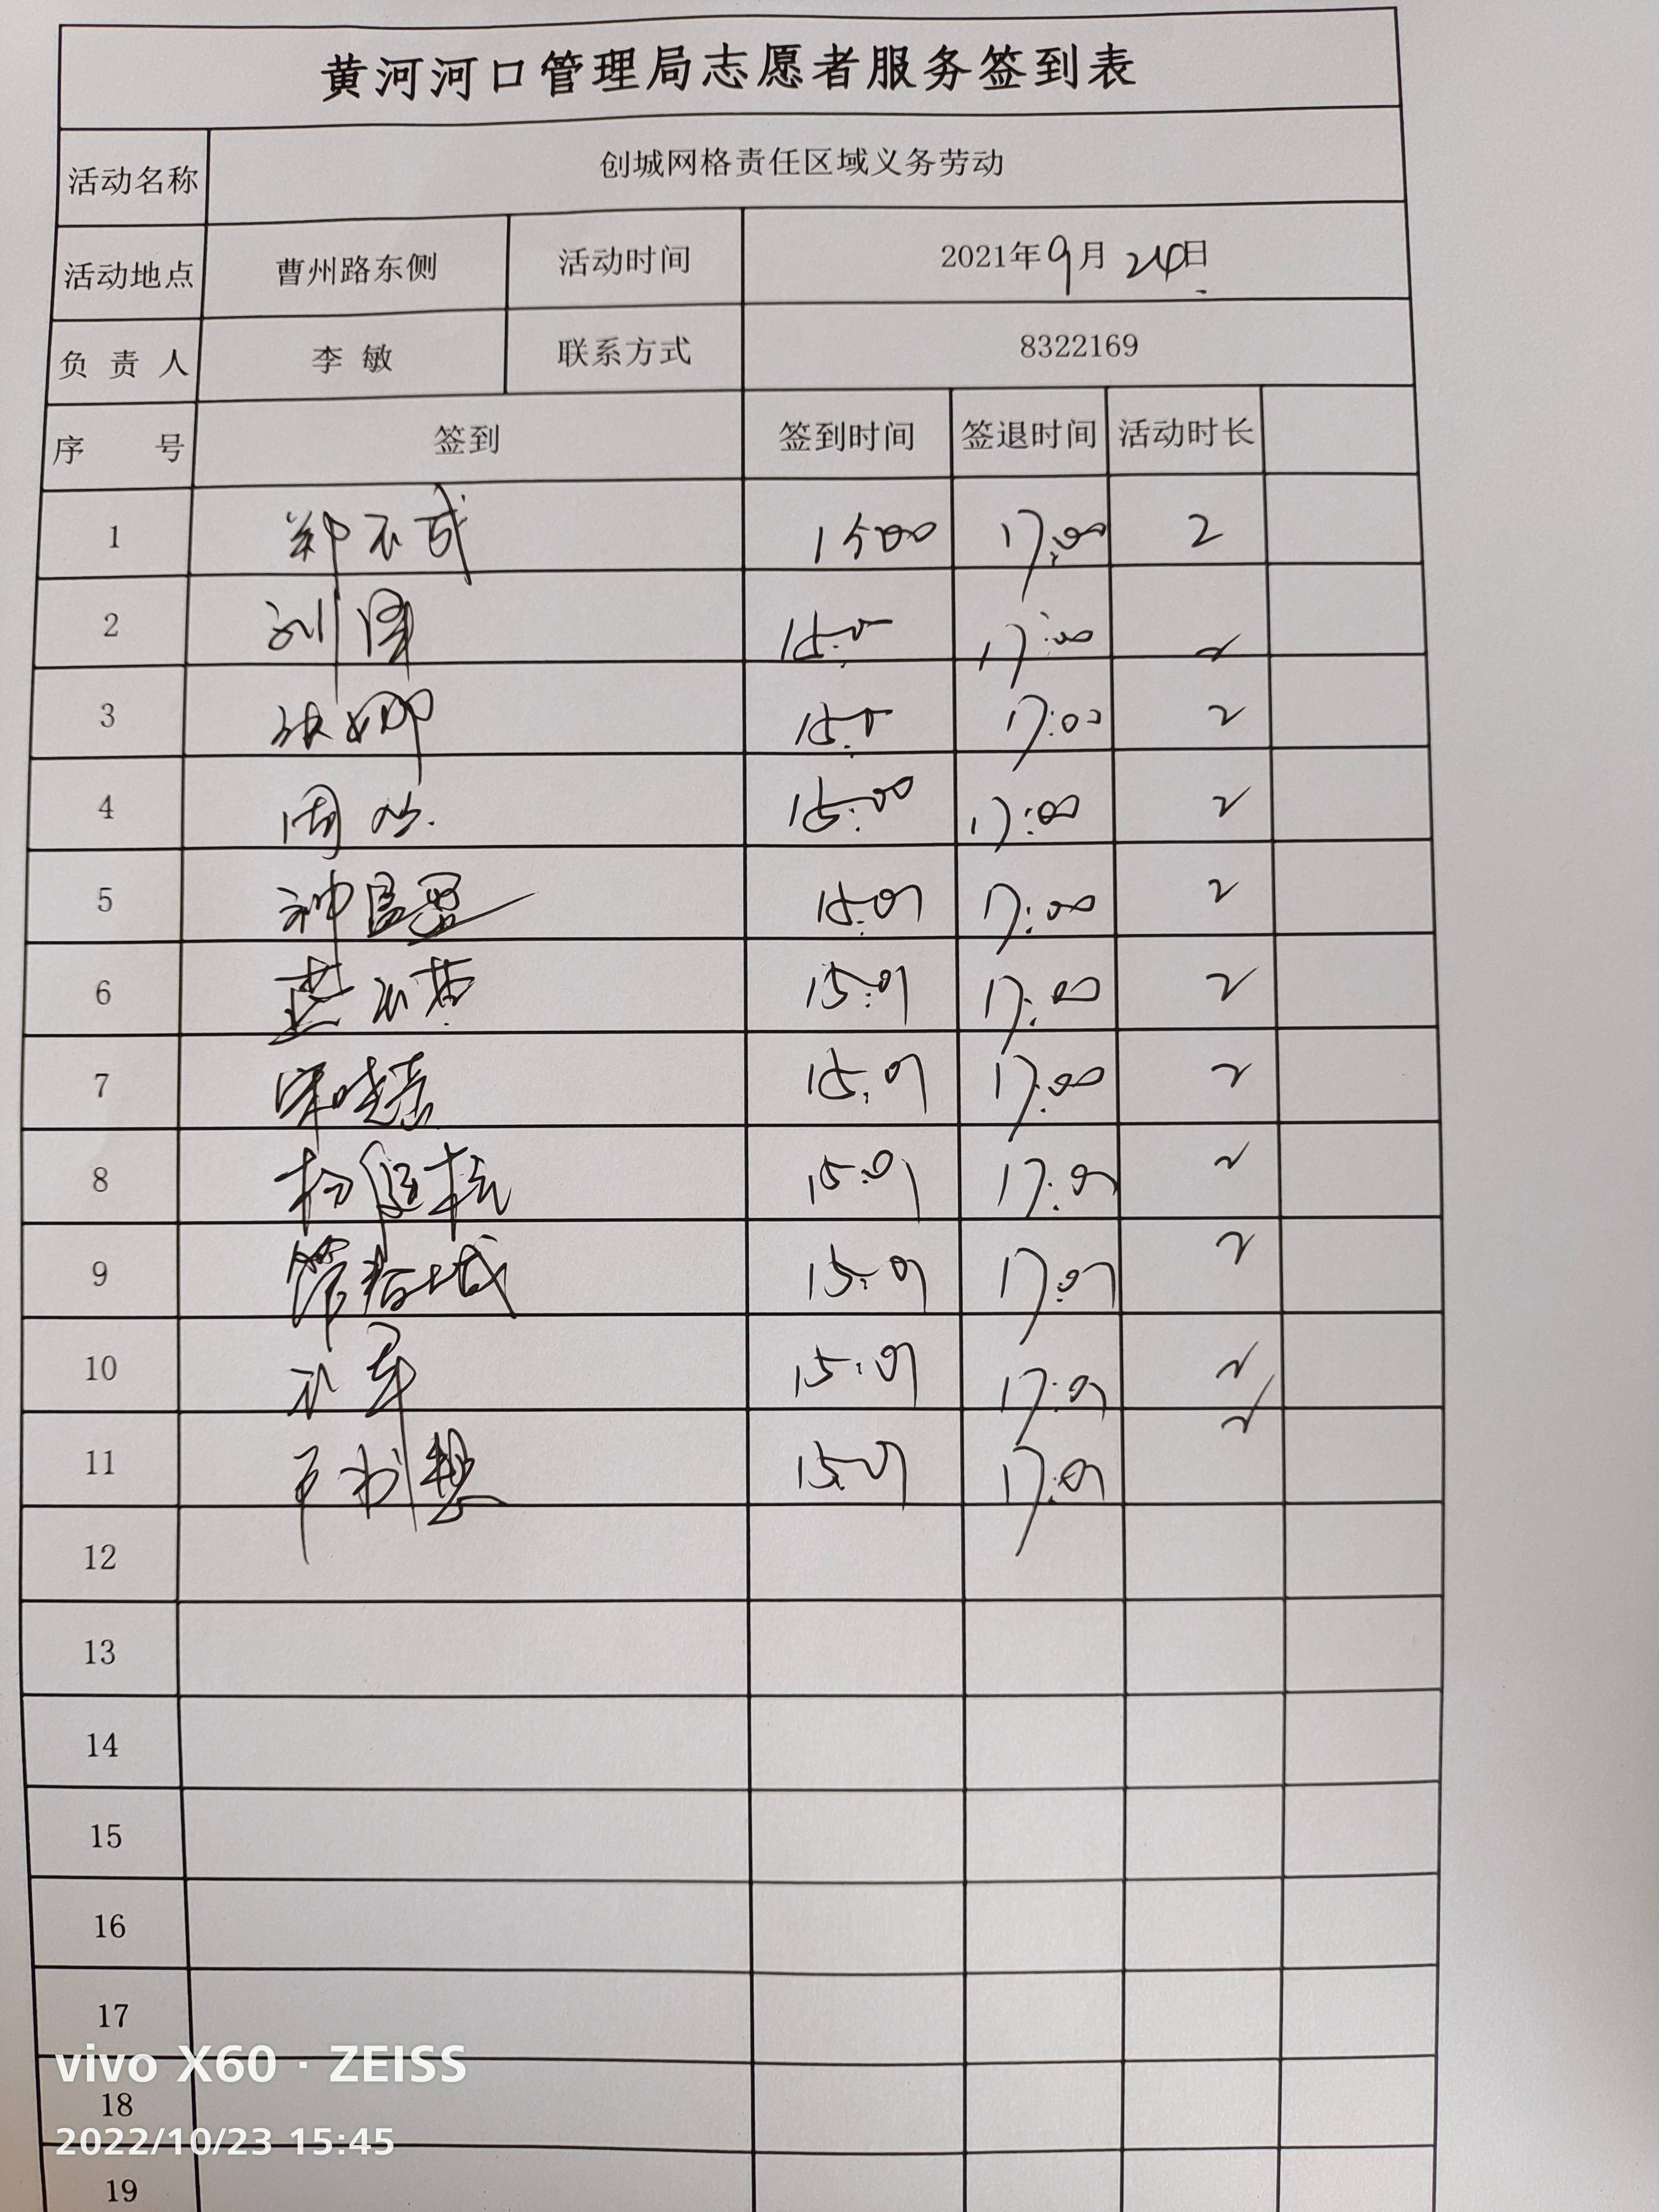 黄河河口管理局志愿者服务签到表
活动名称 创城网格责任区域义务劳动
活动地点 曹州路东侧 活动时间 2021年9月24日
负责人 李敏 联系方式 8322169
序号 签到 签到时间 签退时间 活动时长
1 1500 17:00 2
2 刘 17:00 2
3 张娜 17:00 2
4 周 15:00 17:00 2
5 15:00 17:00 2
6 15:00 17:00 2
7 宋晓 15:00 17:00 2
8 杨 15:00 17:00 2
9 管春城 15:00 17:00 2
10 15:00 17:00 2
11 15:00 17:00 2
12
13
14
15
16
17
vivo X60 · ZEISS
18
2022/10/23 15:45
19